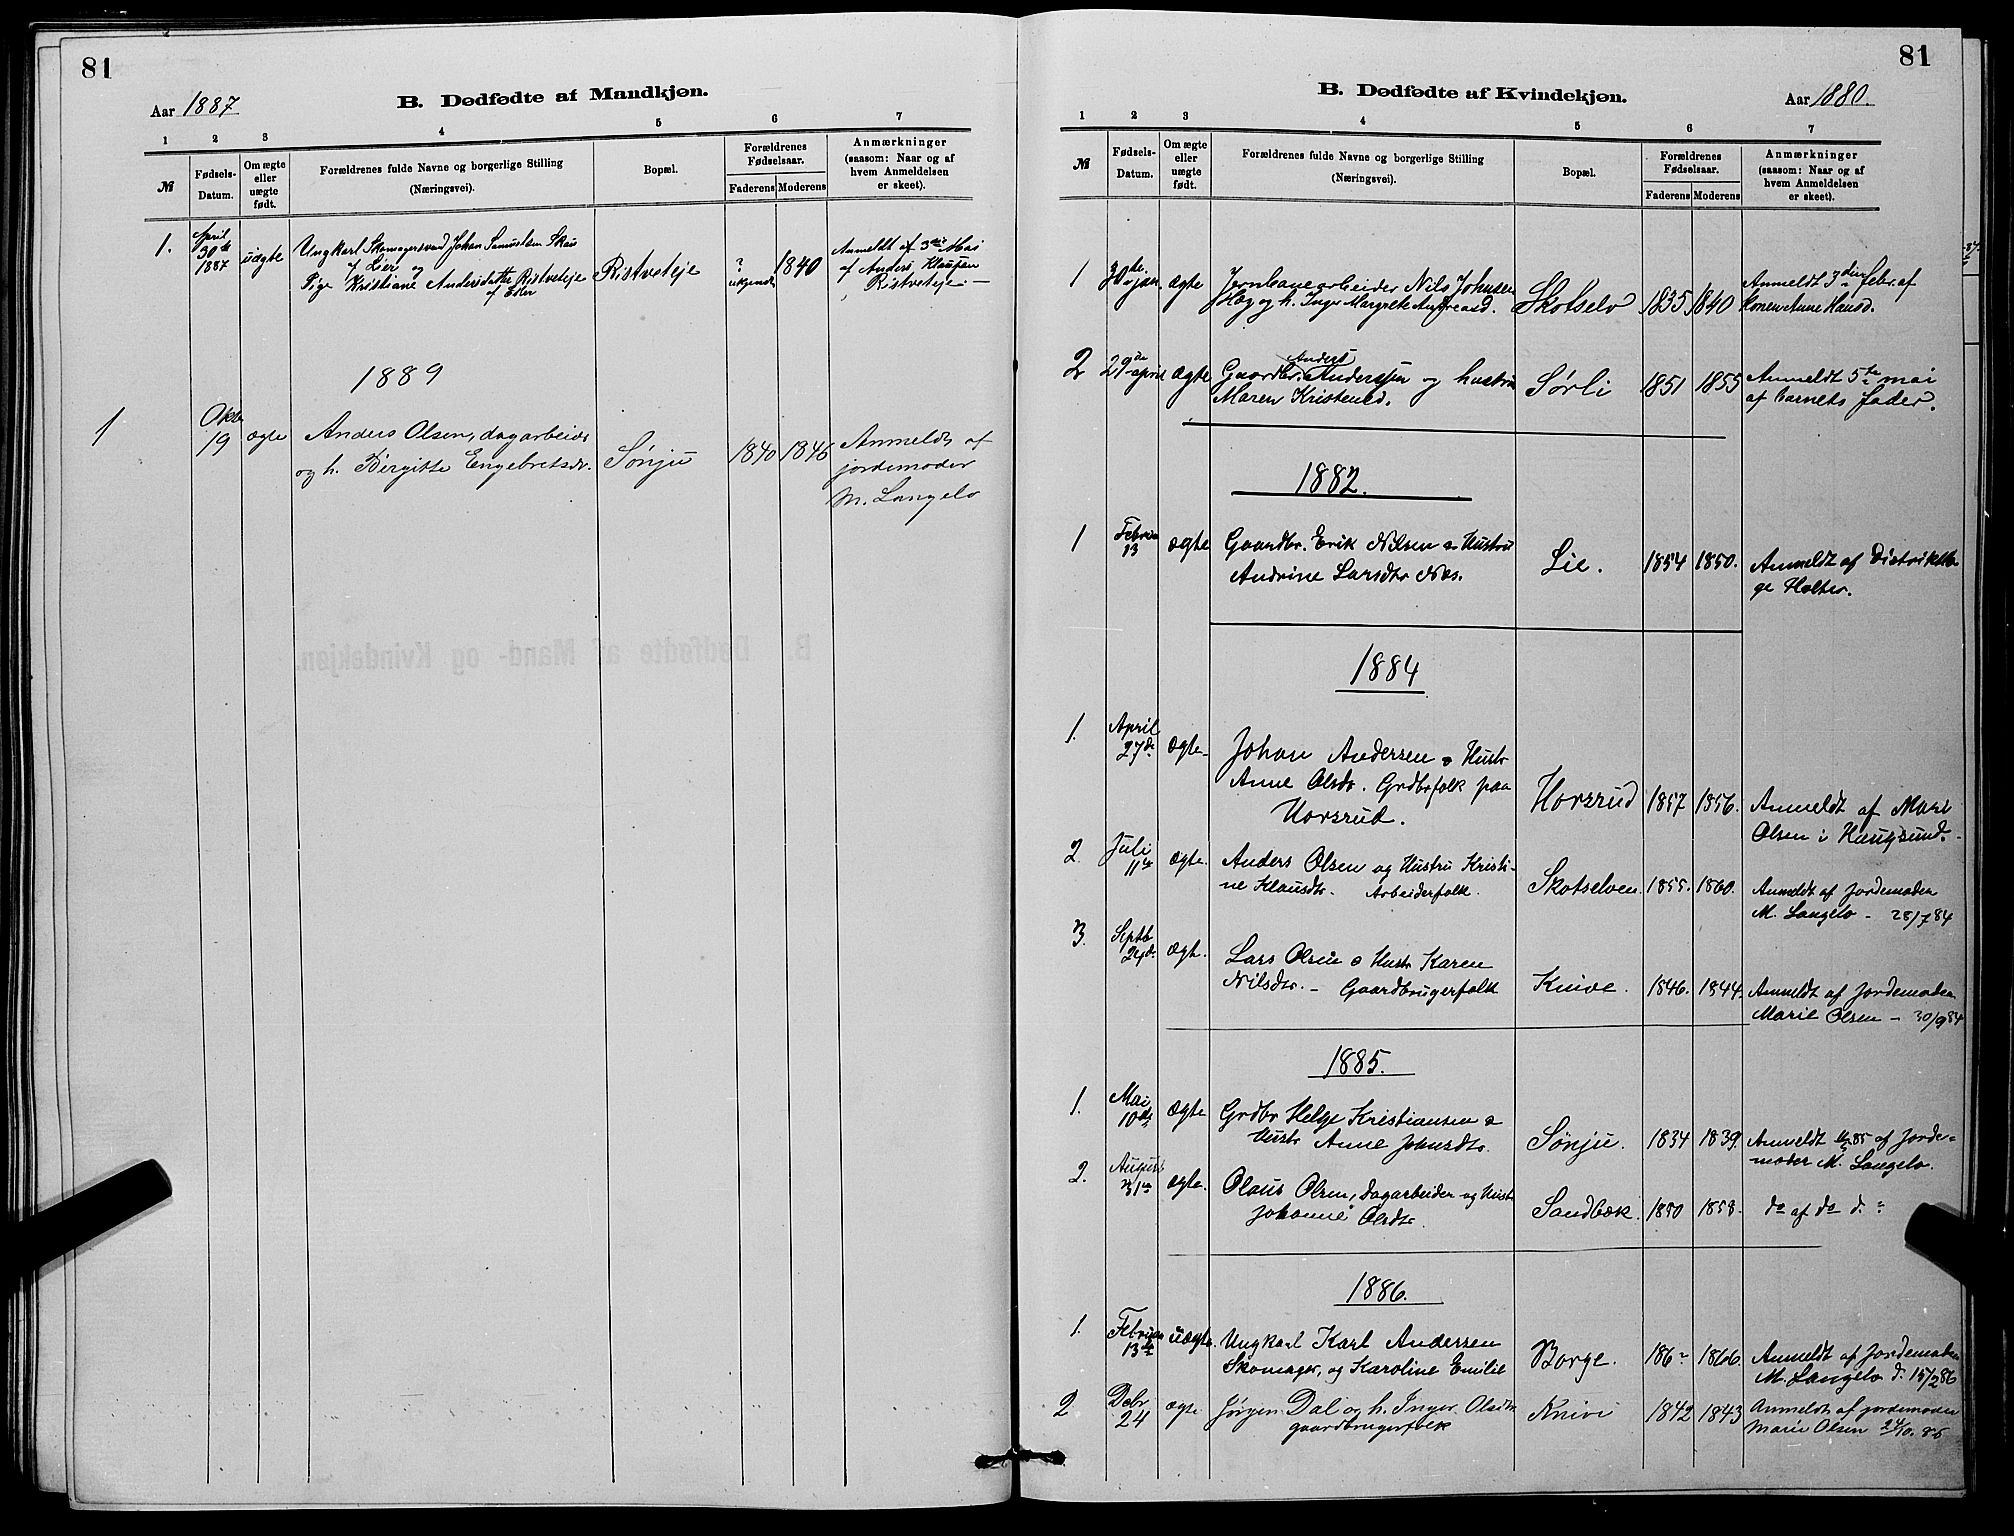 81
Aar 1887
B. Dødfødte af Mandkjøn.
1 2 3 4 5 6 7
№
Fødsels-Datum.
Om ægte eller uægte født.
Forældrenes fulde Navne og borgerlige Stilling (Næringsvei).
Bopæl.
Forældrenes Fødselsaar.
Faderens Moderens
Anmærkninger (saasom: Naar og af hvem Anmeldelsen er skeet).
1. April 30te 1887 uægte Ungkarl Skomagersvend Johan Samuelsen Skus
af Lier og
Pige Kristiane Andersdatter Ristveteje
af Eker
Ristveteje ? ukjendt 1840 Anmeldt af 3die Mai
af Anders Klausen
Ristveteje.—
1889
1 Oktb 19 ægte Anders Olsen, dagarbeider
og h. Birgitte Engebretsdr. Sønju 1840 1846 Anmeldt af
jordemoder
M. Langelo
81
B. Dødfødte af Kvindekjøn.
Aar 1880.
1 2 3 4 5 6 7
№
Fødsels-Datum.
Om ægte eller uægte født.
Forældrenes fulde Navne og borgerlige Stilling (Næringsvei).
Bopæl.
Forældrenes Fødselsaar.
Faderens Moderens
Anmærkninger (saasom: Naar og af hvem Anmeldelsen er skeet).
1 30te jan. ægte Jernbanearbeider Nils Johnsen
Hog og h. Inger Margrete Andreasd. Skotselv 1835 1840 Anmeldt 3die febr. af
konen Anne Hansd.
2 29de april ægte Gaardbr. Anders Anderssen og hustru
Maren Kristensd. Sørli 1851 1855 Anmeldt 5te mai
af barnets fader.
1882.
1 Februar 13 ægte Gaardbr. Erik Nilsen & Hustru
Andrine Larsdtr Næs. Lie. 1854 1850. Anmeldt af Distriktslæ
ge Holter.
1884
1. April 27de ægte Johan Andersen & Hustr
Anne Olsdr. Grdbrfolk paa
Horsrud. Horsrud 1857 1856. Anmeldt af Mari
Olsen i Haugsund.
2. Juli 11te ægte. Anders Olsen og Hustru Kristi-
ne Klausdtr. Arbeiderfolk. Skotselven. 1855. 1860. Anmeldt af Jordemoder
M. Langelo - 28/7 84
3. Septb ægte. Lars Olsen & Hustr Karen
Nilsdtr. - Gaardbrugerfolk Knive. 1846. 1844. Anmeldt af Jordemoder
Marie Olsen - 30/9 84
1885.
1. Mai 10de ægte Grdbr Helge Kristiansen &
Hustr Anne Johnsdtr. Sønju. 1834 1839. Anmeldt 85 af Jorde-
moder M. Langelo.
2. August 31te ægte. Olaus Olsen, Dagarbeider og Hustr
Johanne Olsdtr. Sandbæk. 1850 1858. do af do d. "
1886.
1. Februar 13de uægte. Ungkarl Karl Andersen
Skomager, og Karoline Emilie Borge. 186- 1866. Anmeldt af Jordemoder
M. Langelo d. 15/2 86
2 Debr 24 ægte Jørgen Dal og h. Inger Olsdtr
gaardbrugerfolk Knive 1842 1843 Anmeldt af jordemoder
Marie Olsen